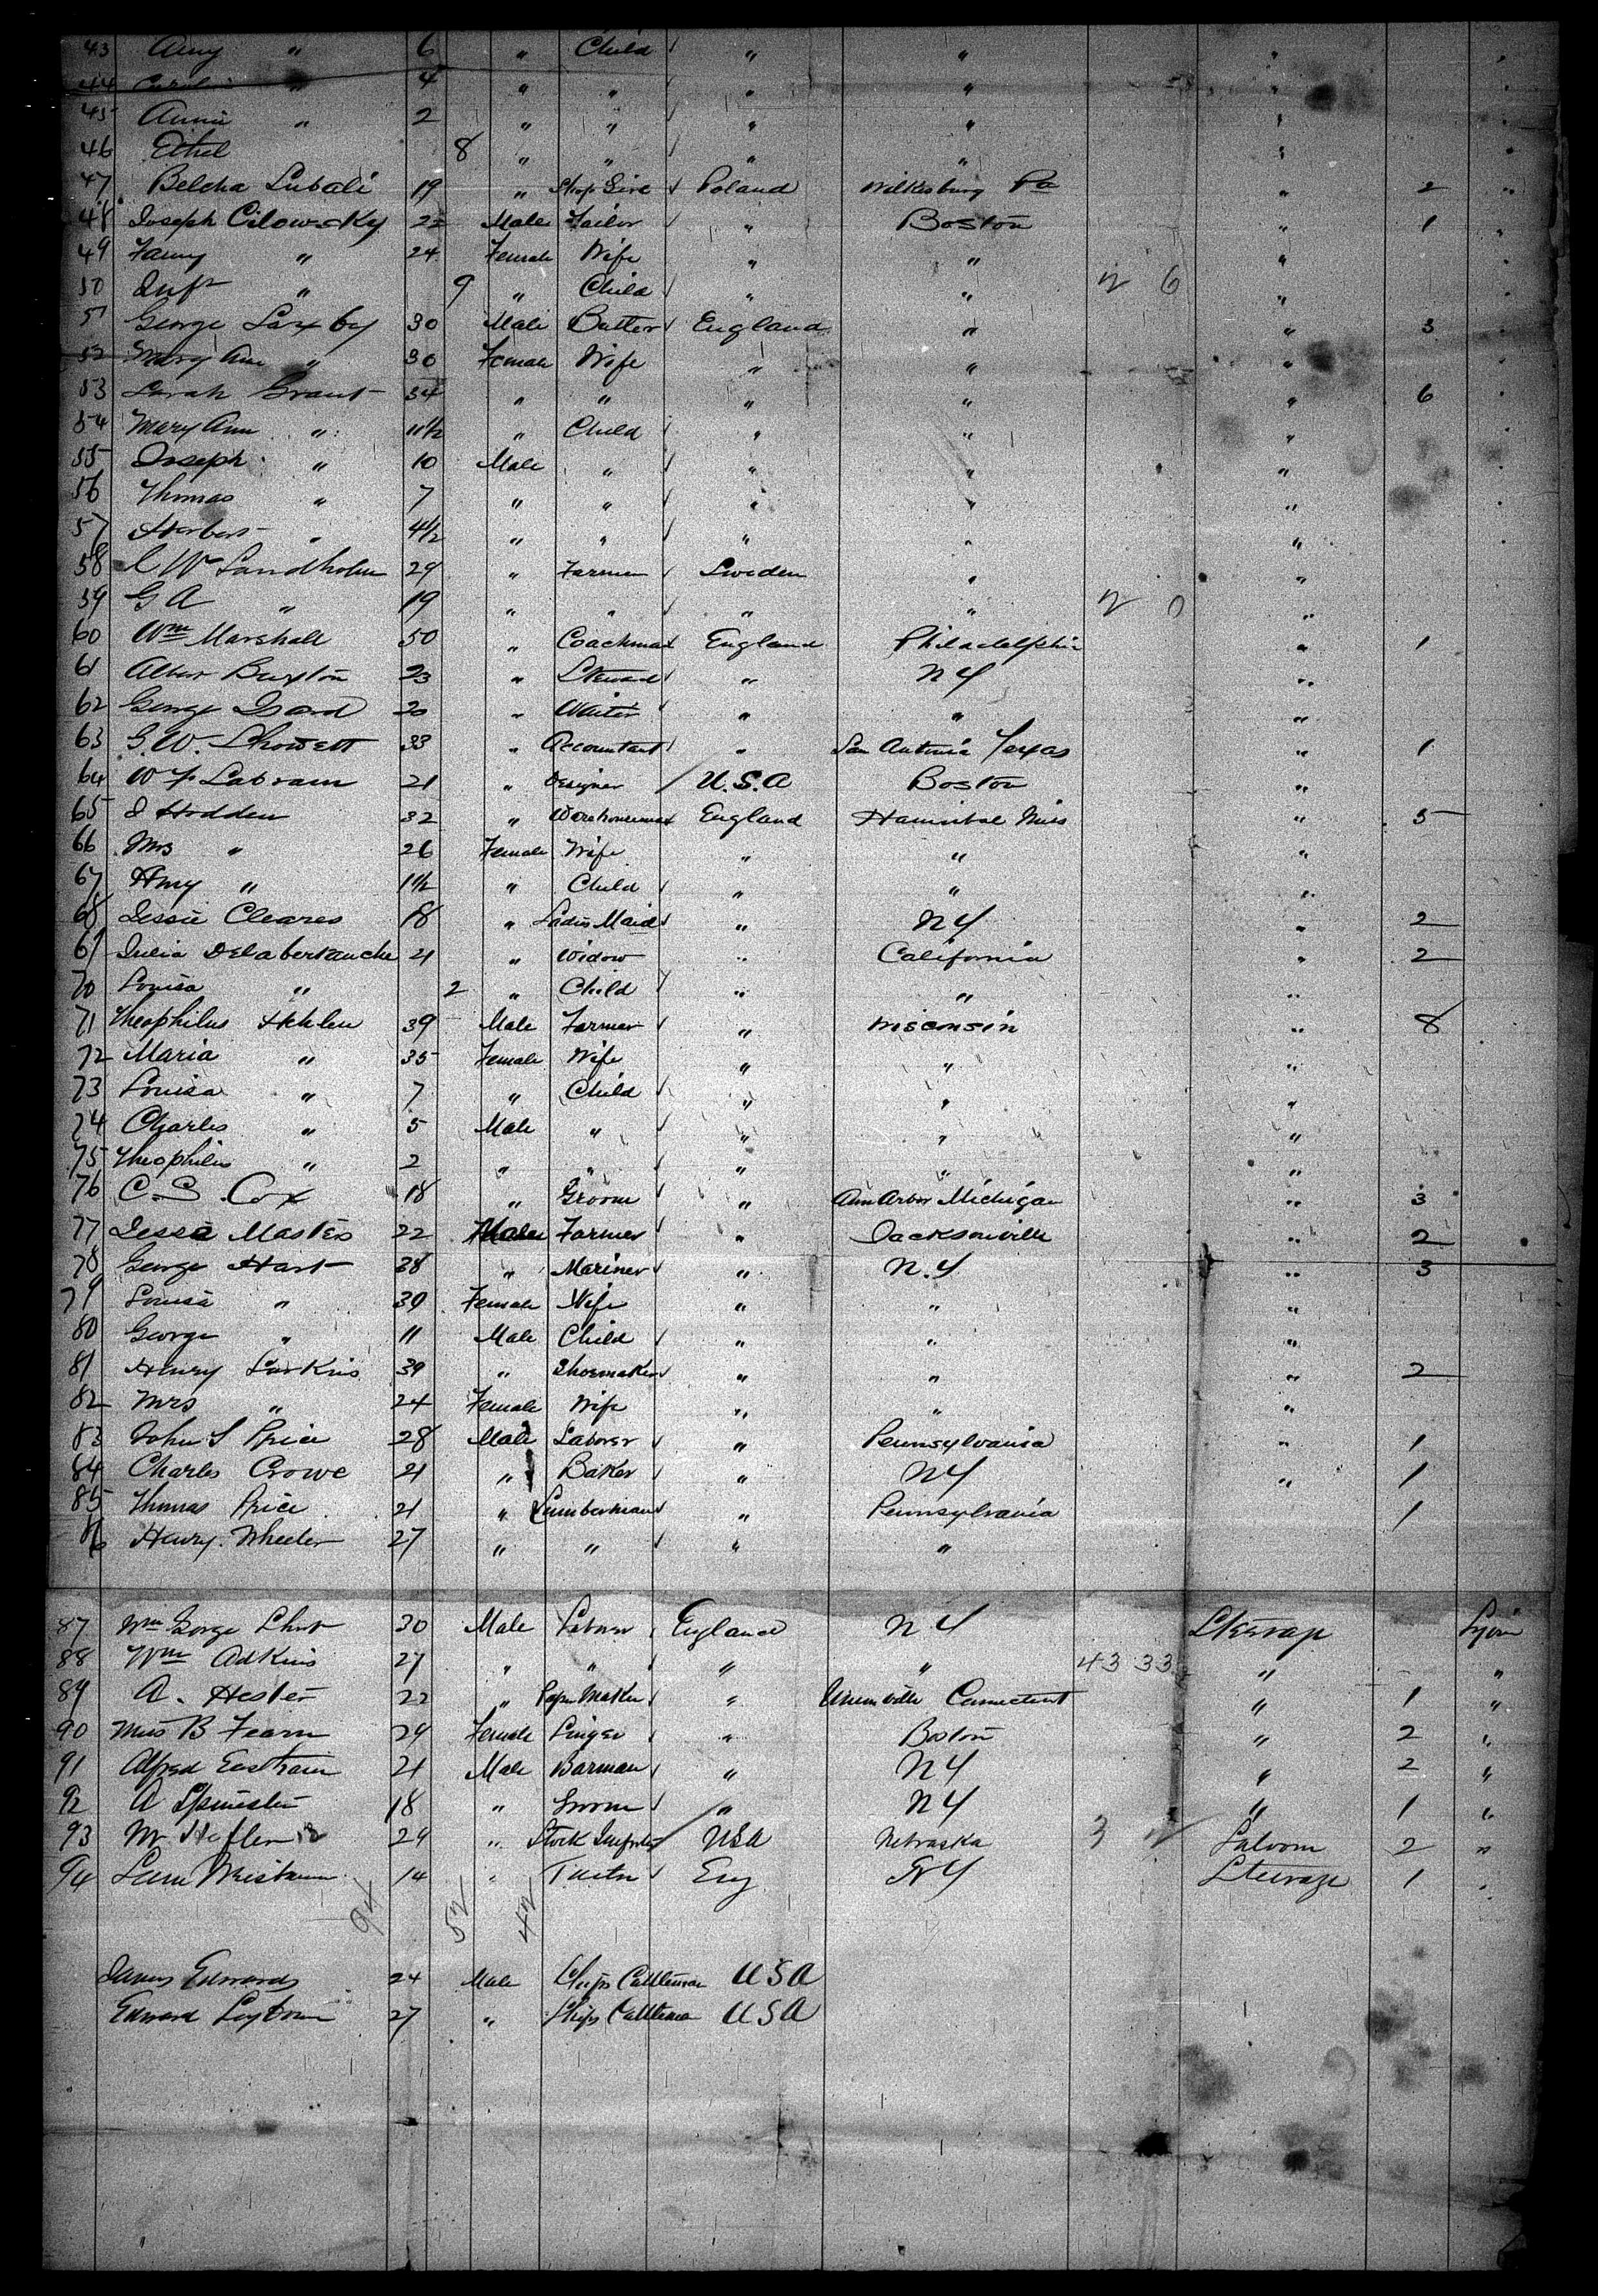 43 Amy " 6 " Child " " "
44 " 4 " " " " "
45 Annie " 2 " " " " "
46 Ethel 8 " " " " "
47 Belcha Lubali 19 " Poland Wilkesburg Pa " 2 "
48 Joseph Cilowsky 22 Male Tailor " Boston " 1 "
49 Fanny " 24 Female Wife " " "
50 Inft " 9 " Child " " 2 6 "
51 George Saxby 30 Male Butler England " " 3
52 Mary Ann " 30 Female Wife " " "
53 Sarah Grant 34 " " " " " 6
54 Mary Ann " 11 1/2 " Child " " "
55 Joseph " 10 Male " " " "
56 Thomas " 7 " " " " "
57 Herbert " 4 1/2 " " " " "
58 C W Sandholm 29 " Farmer Sweden " "
59 G A " 19 " " " " 2 0 "
60 Wm Marshall 50 " Coachman England Philadelphia " 1
61 Albert Buxton 23 " Steward " N Y "
62 George Isard 20 " Waiter " " "
63 G. W. Showett 33 " Accountant " San Antonia Texas " 1
64 W F Labram 21 " Designer U.S.A Boston "
65 J Hodden 32 " Warehouseman England Hannibal Miss " 5
66 Mrs " 26 Female Wife " " "
67 Amy " 1 1/2 " Child " " "
68 Jessie Cleares 18 " Ladies Maid " N Y " 2
69 Julia Delabertauche 21 " Widow " California " 2
70 Louisa " 2 " Child " " "
71 Theophilus 39 Male Farmer " Wisconsin " 8
72 Maria " 35 Female Wife " " "
73 Louisa " 7 " Child " " "
74 Charles " 5 Male " " " "
75 Theophilus " 2 " " " " "
76 C. S. Cox 18 " Groom " Ann Arbor Michigan " 3
77 Jesse Masters 22 Male Farmer " Jacksonville " 2
78 George Hart 38 " Mariner " N.Y " 3
79 Louisa " 39 Female Wife " " "
80 George " 11 Male Child " " "
81 Henry Larkins 39 " Shoemaker " " " 2
82 Mrs " 24 Female Wife " " "
83 John S Price 28 Male Laborer " Pennsylvania " 1
84 Charles Crowe 21 " Baker " N Y " 1
85 Thomas Price 21 " Lumberman " Pennsylvania 1
86 Henry Wheeler 27 " " " "
87 Wm George 30 Male Laborer England N Y Steerage
88 Wm Adkins 27 " " " " 43 33 " "
89 A. Hester 22 " Paper Maker " Connecticut " 1 "
90 Miss B Fearn 24 Female Singer " Boston " 2 "
91 Alfred Eastham 21 Male Barman " N Y " 2 "
92 A Spinester 18 " Groom " N Y " 1 "
93 Mr Hefler 24 " Stock USA Nebraska 3 Saloon 2 "
94 14 " Eng N Y Steerage 1 "
94 52 42
James Edwards 24 Male Ships Cattleman USA
Edward 27 " Ships Cattleman USA